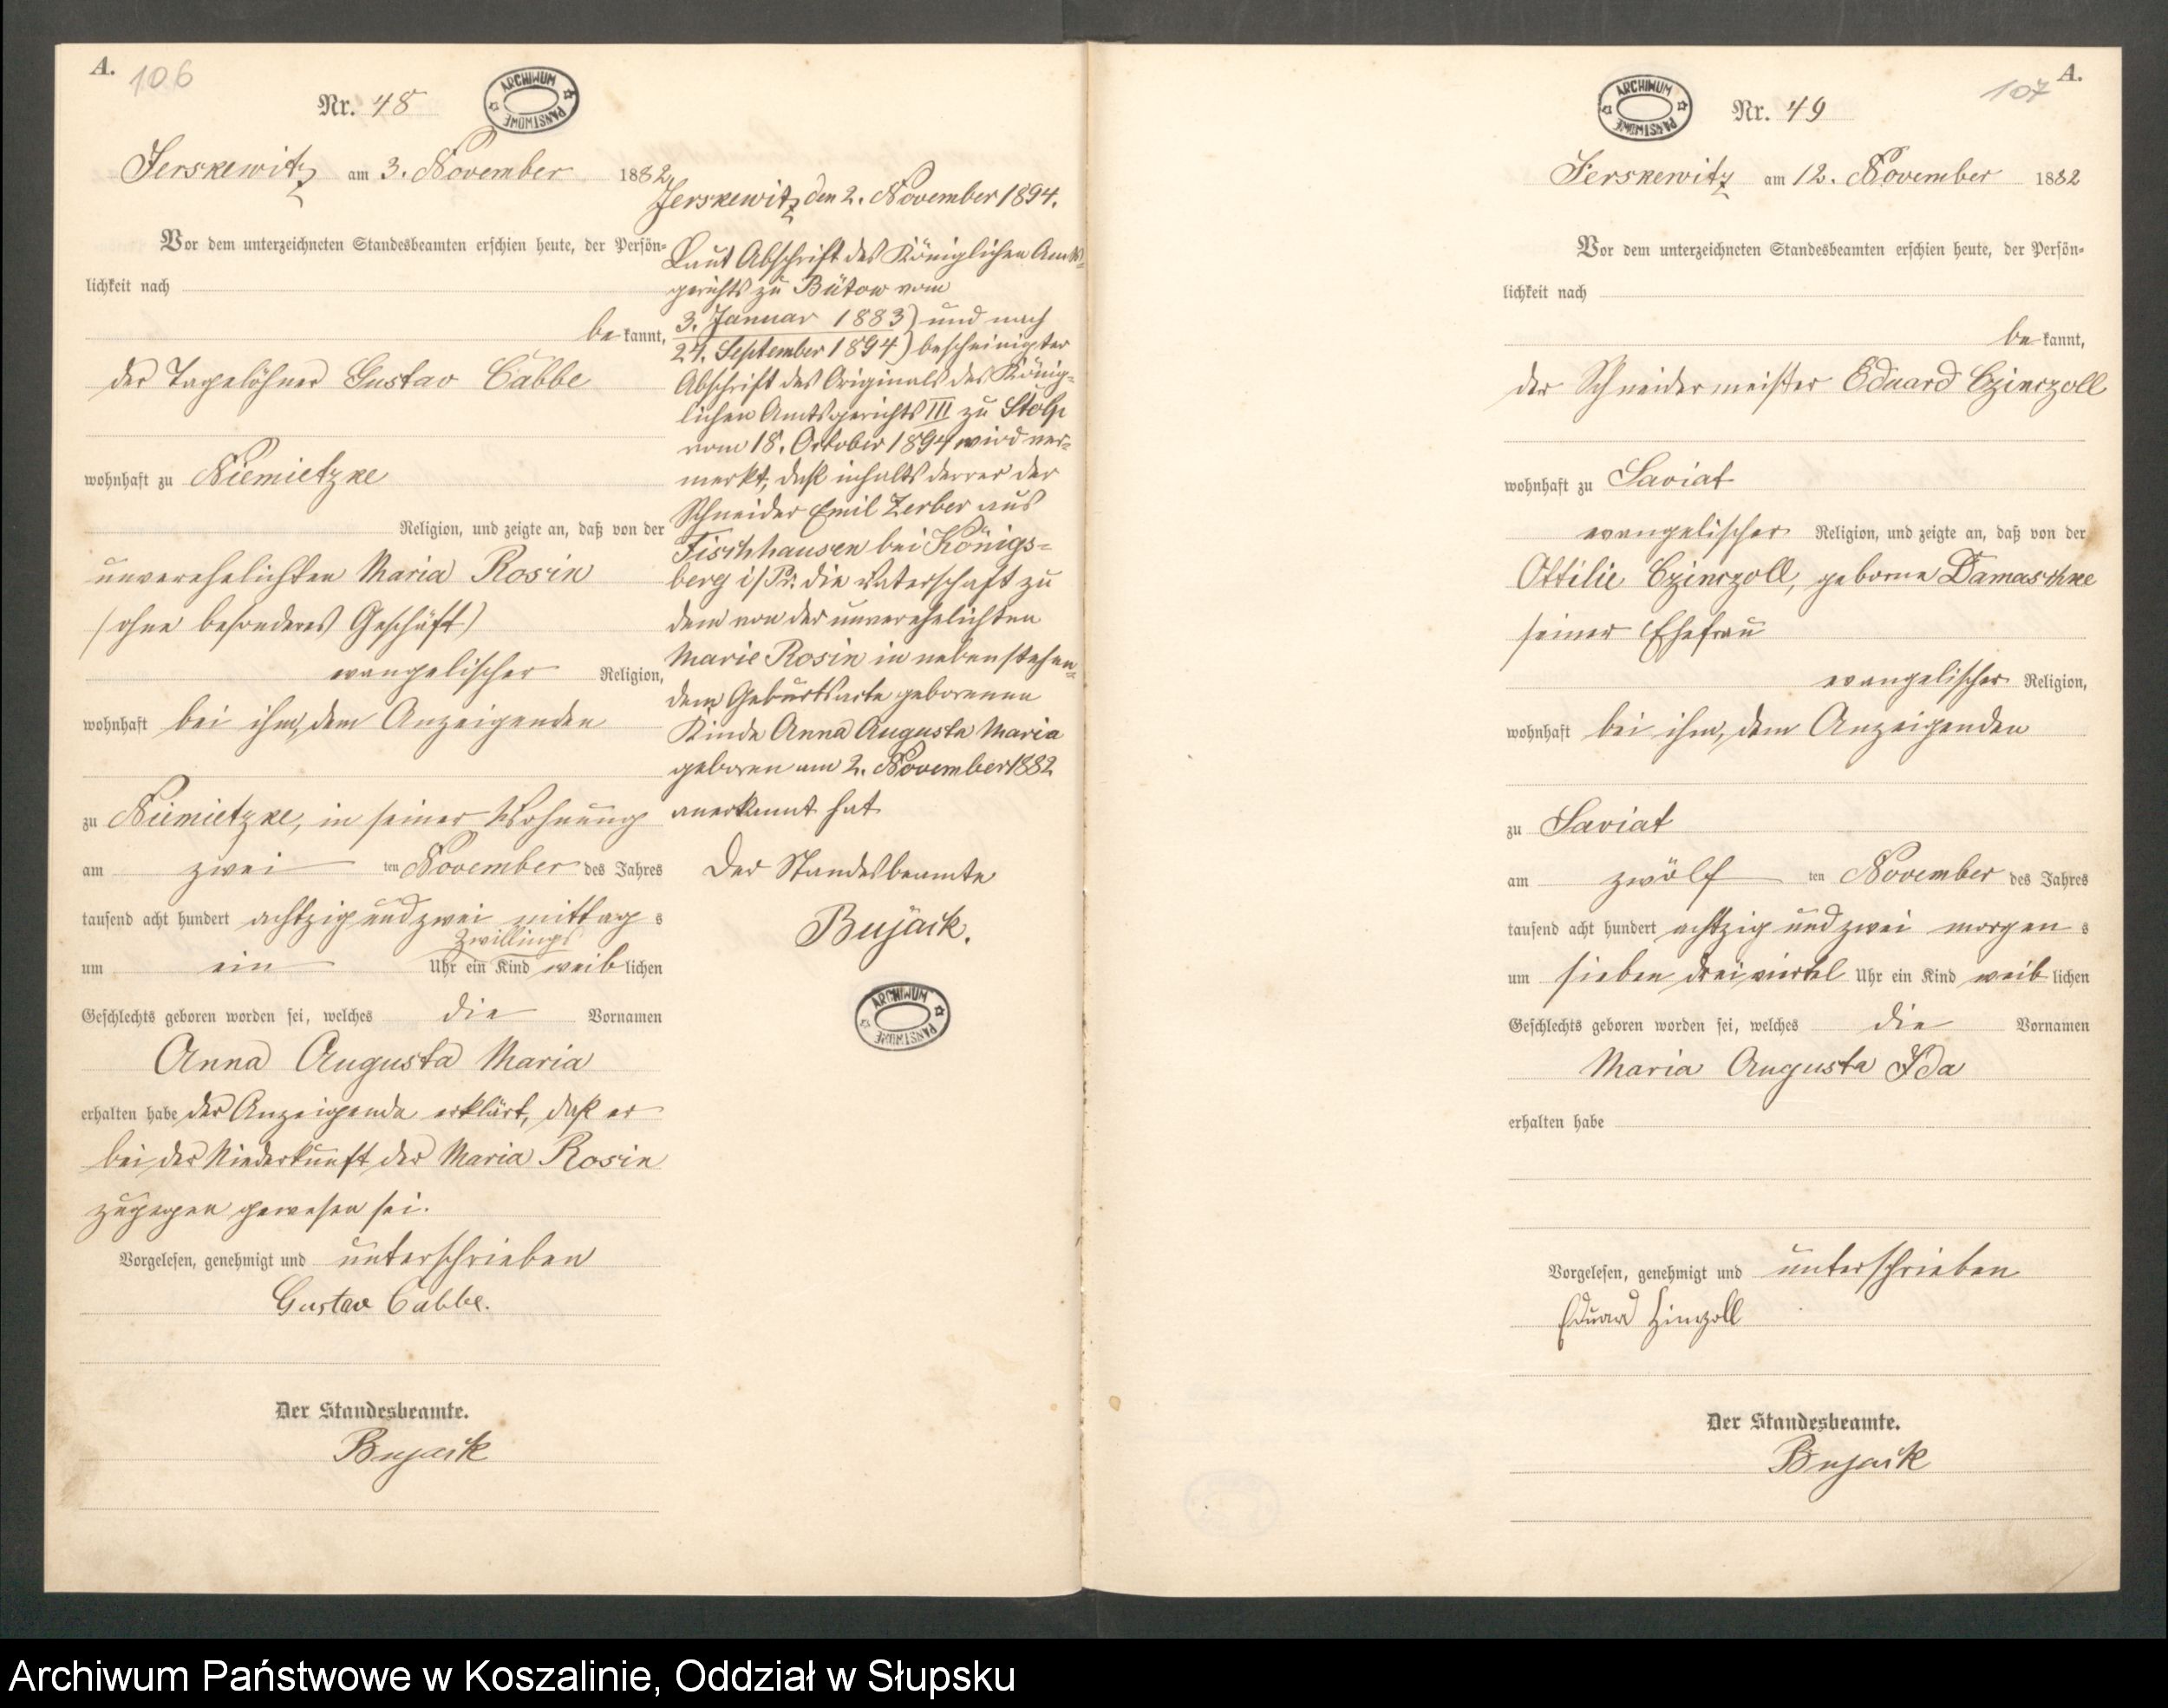 A.
106
Nr. 48
ARCHIWUM PAŃSTWOWE
Jerskewitz am 3. November 1882
Vor dem unterzeichneten Standesbeamten erschien heute, der Persön-
lichkeit nach
be kannt,
der Tagelöhner Gustav Cabbe
wohnhaft zu Niemietzke
Religion, und zeigte an, daß von der
unverehelichten Maria Rosin
(ohne besonderes Geschäft)
evangelischer Religion,
wohnhaft bei ihm, dem Anzeigenden
zu Niemietzke, in seiner Wohnung
am zwei ten November des Jahres
tausend acht hundert achtzig und zwei mittag s
Zwillings
um ein Uhr ein Kind weib lichen
Geschlechts geboren worden sei, welches die Vornamen
Anna Augusta Maria
erhalten habe der Anzeigende erklärt, daß er
bei der Niederkunft der Maria Rosin
zugegen gewesen sei.
Vorgelesen, genehmigt und unterschrieben
Gustav Cabbe.
Der Standesbeamte.
Bujack
Jerskewitz den 2. November 1894.
Laut Abschrift des Königlichen Amts-
gerichts zu Bütow vom
3. Januar 1883) und nach
24. September 1894) bescheinigter
Abschrift des Originals des König-
lichen Amtsgerichts III zu Stolp
vom 18. October 1894 wird ver-
merkt, daß inhalts derer der
Schneider Emil Zerber aus
Fischhausen bei Königs-
berg i/Pr. die Vaterschaft zu
dem von der unverehelichten
Marie Rosin in nebenstehen-
dem Geburtsacte geborenen
Kinde Anna Augusta Maria
geboren am 2. November 1882
anerkannt hat
Der Standesbeamte
Bujack.
ARCHIWUM PAŃSTWOWE
A.
107
ARCHIWUM PAŃSTWOWE
Nr. 49
Jerskewitz am 12. November 1882
Vor dem unterzeichneten Standesbeamten erschien heute, der Persön-
lichkeit nach
be kannt,
der Schneidermeister Eduard Czinczoll
wohnhaft zu Saviat
evangelischer Religion, und zeigte an, daß von der
Ottilie Czinczoll, geborne Damaschke
seiner Ehefrau
evangelischer Religion,
wohnhaft bei ihm, dem Anzeigenden
zu Saviat
am zwölf ten November des Jahres
tausend acht hundert achtzig und zwei morgen s
um sieben dreiviertel Uhr ein Kind weib lichen
Geschlechts geboren worden sei, welches die Vornamen
Maria Augusta Ida
erhalten habe
Vorgelesen, genehmigt und unterschrieben
Eduard
Der Standesbeamte.
Bujack
Archiwum Państwowe w Koszalinie, Oddział w Słupsku